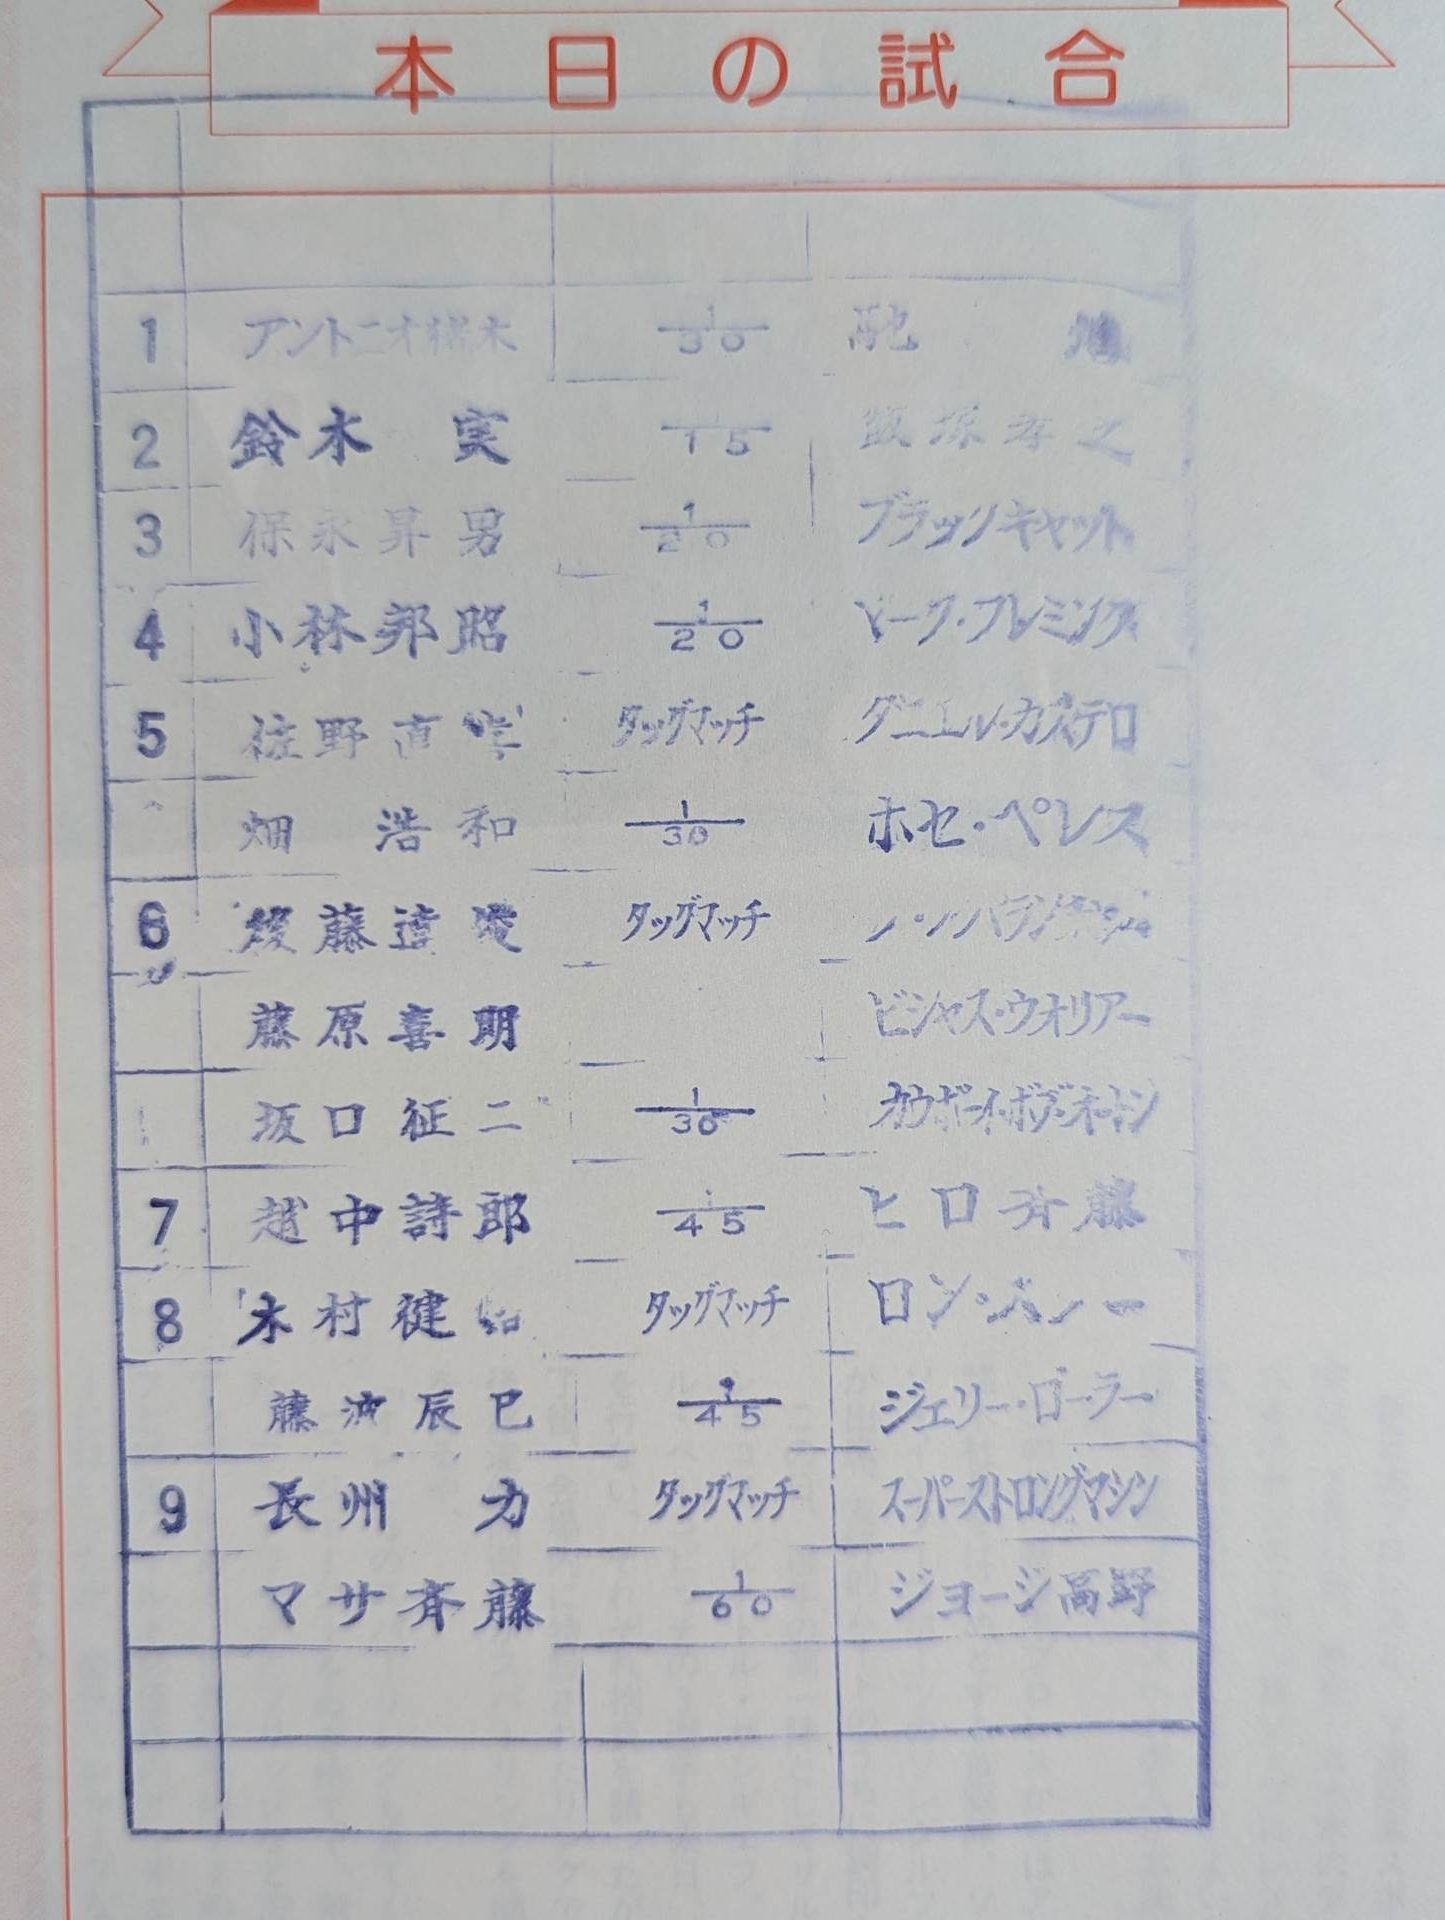 本日の試合
1 アントニオ猪木 1/30
2 鈴木 実 1/15 飯塚孝之
3 保永昇男 1/20 ブラックキャット
4 小林邦昭 1/20 マーク・フレミング
5 佐野直 タッグマッチ ダニエル・カステロ
畑 浩和 1/30 ホセ・ペレス
6 後藤達 タッグマッチ
藤原喜明 ビシャス・ウオリアー
坂口征二 1/30 カウボーイ・ボブ・オートン
7 越中詩郎 1/45 ヒロ斉藤
8 木村健 タッグマッチ ロン・
藤波辰巳 1/45 ジェリー・ローラー
9 長州 力 タッグマッチ スーパーストロングマシン
マサ斉藤 1/60 ジョージ高野